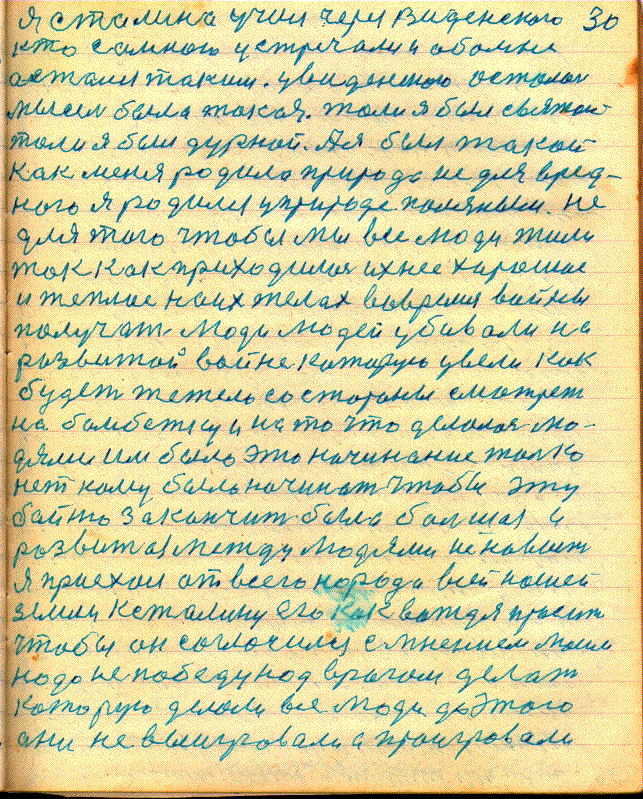 я сталина учил через Виденского 30
кто самною устречали и обомне
астались таким. увиденского осталои
мысль была такая. толи я был святой
толи я был дурной. А я был такой
как меня родила природа не для вред-
ного я родился уприроде полязным. не
для того чтобы мы все люди жили
так как приходилося ихнее харошае
и теплае на их телах вовремя войны
получат. люди людей убивали на
развитой войне которую увели как
будет тежело состораны смотрет
на бамбежку и на то что делолоя лю-
дями им было это начинание толко
нет кому было начинат чтобы эту
байто закончит была балшая и
развитая между людями ненавист
я приехал от всего народа всей нашей
земли к сталину его как вождя просит
чтобы он согласился смнением моим
надо не победу над врагом делат
которую делали все люди до этого
ани не выигровали а проигровали